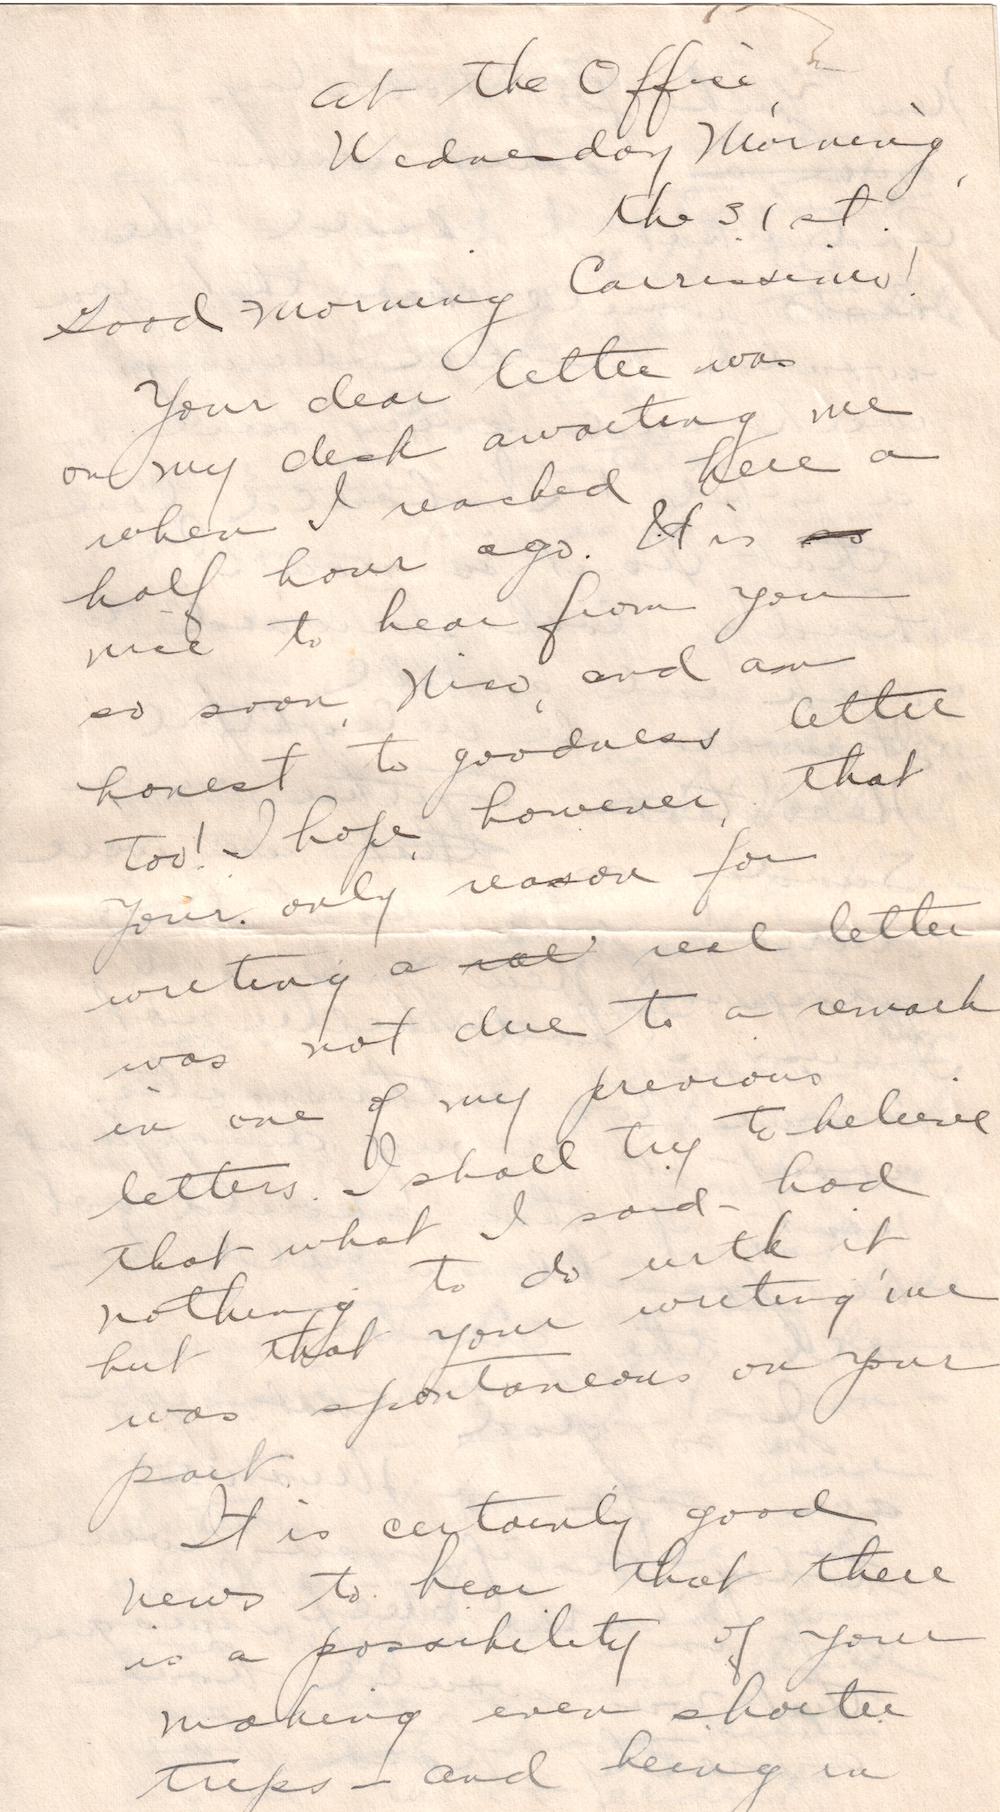 at the Office,
Wednesday Morning,
the 31st.
Good Morning Carrissimo!
Your dear letter was
on my desk awaiting me
when I reached here a
half hour ago. It is so
nice to hear from you
so soon, Nino, and an
honest to goodness letter
too! I hope, however, that
your only reason for
writing a real letter
was not due to a remark
in one of my previous
letters. I shall try to believe
that what I said - had
nothing to do with it
but that your writing me
was spontaneous on your
part.
It is certainly good
news to hear that there
is a possibility of your
making even shorter
trips - and being in